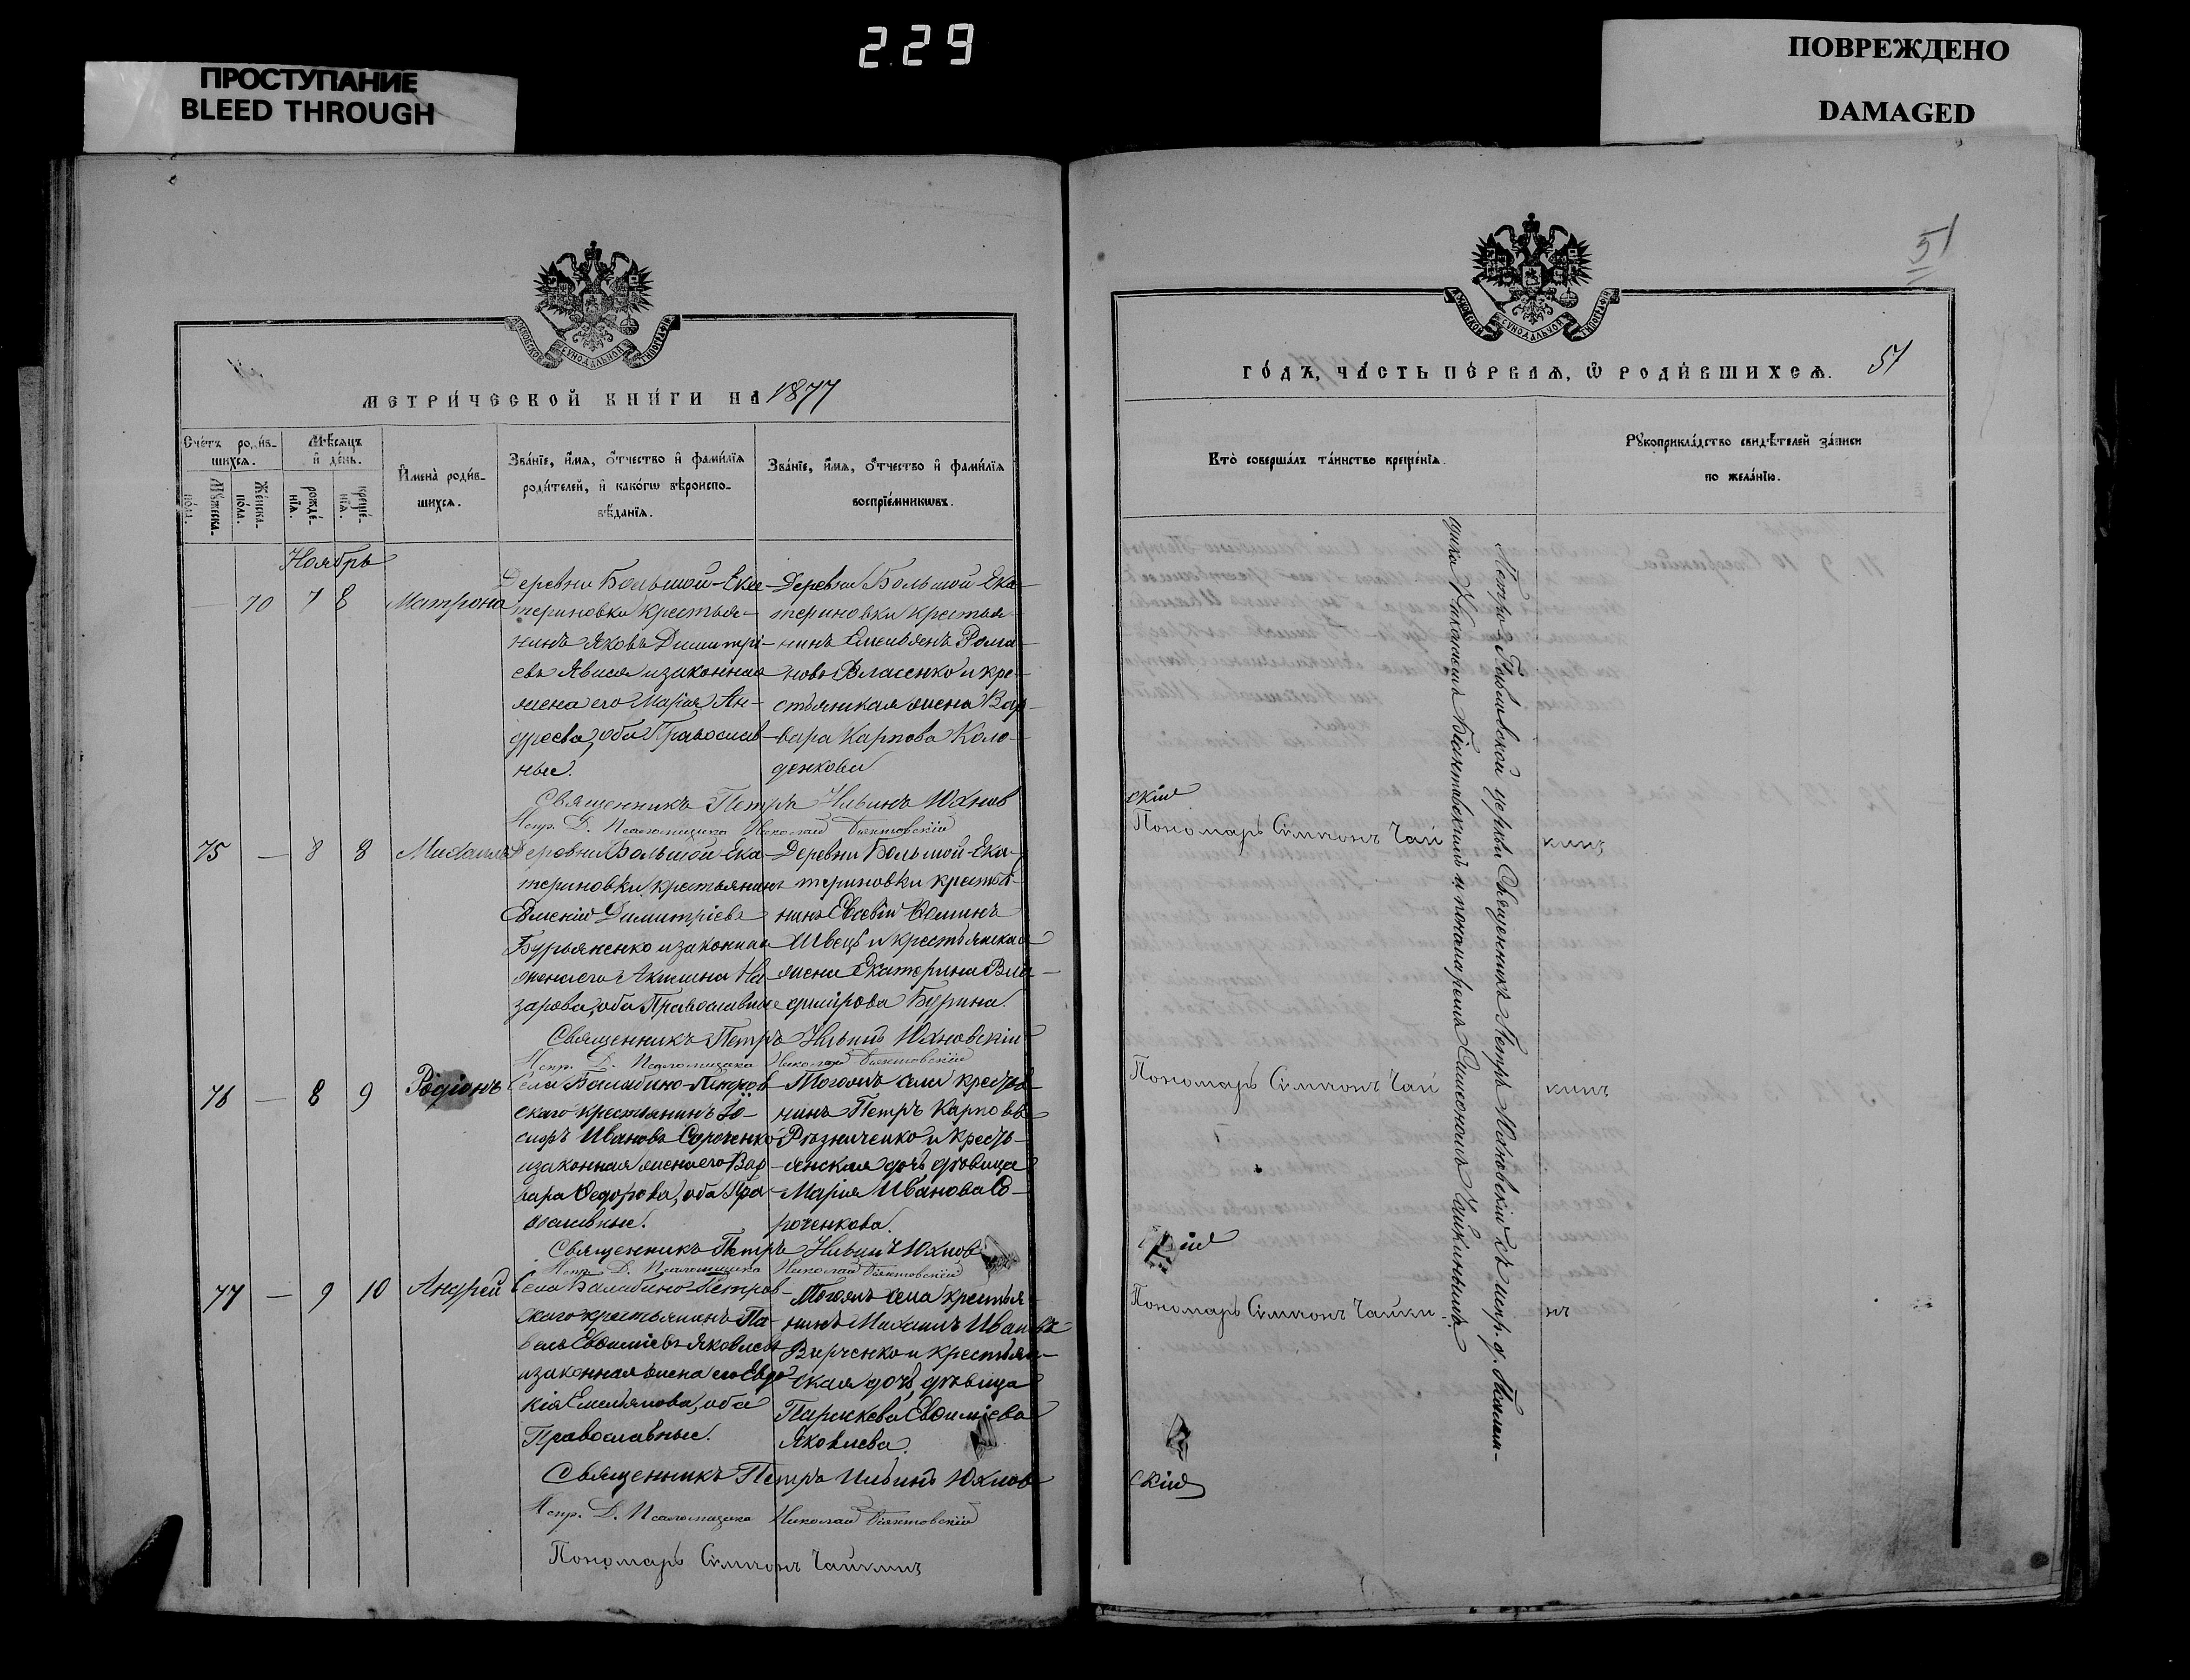 229
ПРОСТУПАНИЕ
BLEED THROUGH
ПОВРЕЖДЕНО
DAMAGED
МОСКОВСКОЙ СѴНОДАЛЬНОЙ ТИПОГРАФІИ
МЕТРИ́ЧЕСКОЙ КНИ́ГИ НА 1877
Сче́тъ роди́в-
шихся.
Мѣ́сяцъ
и҆ де́нь.
Мꙋ́жеска-
по́ла.
Же́нска-
по́ла.
рожде́-
нїѧ.
креще́-
нїѧ.
И҆мена̀ роди́в-
шихсѧ.
Зва́нїе, и҆́мѧ, ѻ҆́тчество и҆ фами́лїѧ
роди́телей, и҆ како́гѡ вѣроиспо-
вѣ́данїѧ.
Зва́нїе, и҆́мѧ, ѻ҆́тчество и҆ фами́лїѧ
воспрїе́мникѡвъ.
Ноябрь
— 70 7 8 Матрона
Деревни Большой-Ека-
териновки крестья-
нинъ Яковъ Димитрі-
евъ
и законная
жена его Марія Ан-
дреева, оба Православ-
ные.
Деревни Большой Ека-
териновки крестья-
нинъ Емельянъ Рома-
новъ Власенко и кре-
стьянская жена Вар-
вара Карпова Коло-
денкова
Священникъ Петръ Ильинъ Юхнов
Испр. Д. Псаломщика Николай Бѣянтовскій
75 — 8 8 Михаилъ
Деревни Большой Ека-
териновки крестьянинъ
Димитріевъ
Бурьяненко и законная
жена его Акилина На-
зарова, оба Православные
Деревни Большой-Ека-
териновки крестья-
нинъ Евсевій Ѳоминъ
Швецъ и крестьянская
жена Екатерина Вла-
димірова Бурина.
Священникъ Петръ Ильинъ Юхновскій
Испр. Д. Псаломщика Николай Бѣянтовскій
76 — 8 9 Родіонъ
Села Балабино-Петров-
скаго крестьянинъ Іо-
сифъ Ивановъ Сороченко
и законная жена его Вар-
вара Ѳедорова, оба Пра-
вославные.
Тогожъ села крестья-
нинъ Петръ Карповъ
Рѣзниченко и кресть-
янская дочь дѣвица
Марія Иванова Со-
роченкова.
Священникъ Петръ Ильинъ Юхнов
Испр. Д. Псаломщика Николай Бѣянтовскій
77 — 9 10 Андрей
Села Балабино-Петров-
скаго крестьянинъ Па-
велъ Евѳиміевъ Яковлевъ
и законная жена его Евдо-
кія Емельянова, оба
Православные.
Тогожъ села крестья-
нинъ Михаилъ Ивановъ
Вирченко и крестьян-
ская дочь, дѣвица
Параскева Евѳиміева
Яковлева.
Священникъ Петръ Ильинъ Юхнов
Испр. Д. Псаломщика Николай Бѣянтовскій
Пономарь Симеонъ Чайкинъ
51
МОСКОВСКОЙ СѴНОДАЛЬНОЙ ТИПОГРАФІИ
ГО́ДЪ, ЧА́СТЬ ПЕ́РВАѦ, Ѡ҆ РОДИ́ВШИХСѦ. 51
Кто̀ соверша́лъ та́инство креще́нїѧ.
Рꙋкоприкла́дство свидѣ́телей за́писи
по жела́нїю.
Петро-Павловской церкви Священникъ Петръ Юхновскій съ испр. д. Псалом-
щика Николаемъ Бѣянтовскимъ и пономаремъ Симеономъ Чайкинымъ.
скій
Пономарь Симеонъ Чайкинъ
Пономарь Симеонъ Чайкинъ
скій
Пономарь Симеонъ Чайкинъ
скій